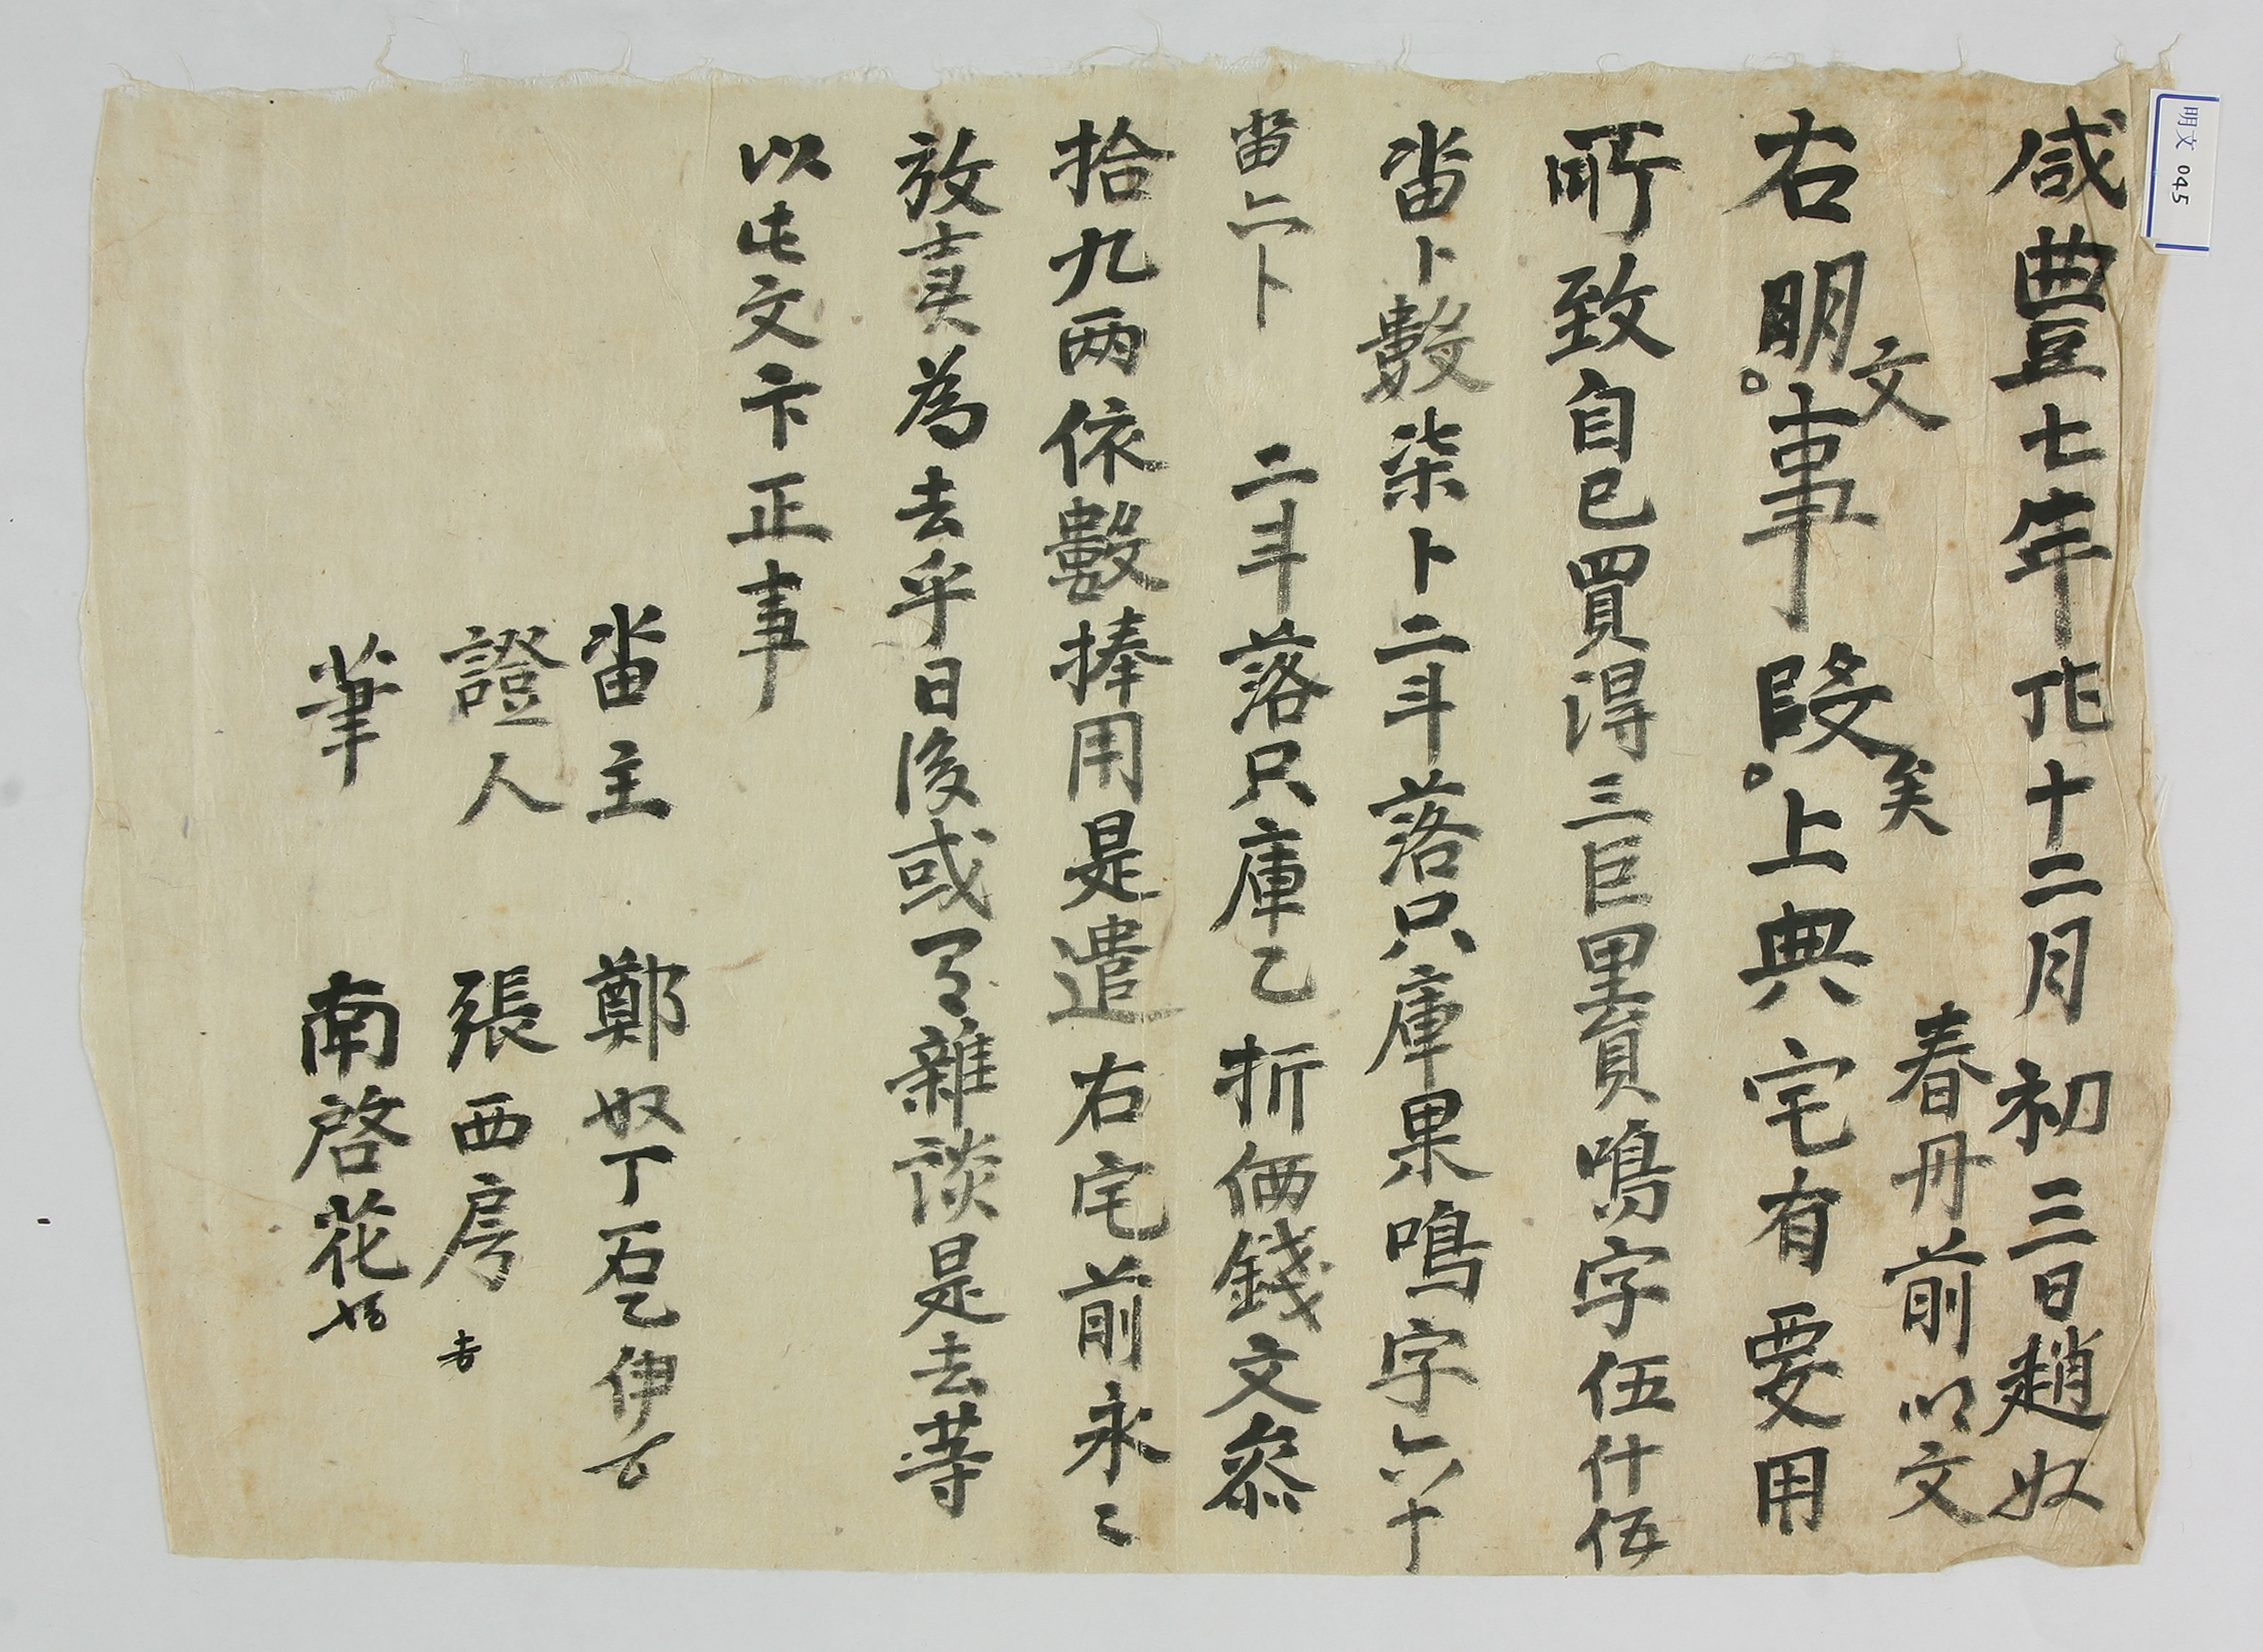 明文 045
咸豊七年丁巳十二月初三日趙奴
春丹前明文
右明文事段矣上典宅有要用
所致自已買得三巨里員鳴字伍什伍
畓卜數柒卜二斗落只庫果鳴字六十
畓二卜 二斗落只庫乙折価錢文叅
拾九两依數捧用是遣右宅前永〻
放賣為去乎日後或有雜談是去等
以此文卞正事
畓主 鄭奴丁石乙伊
證人 張西房
筆 南啓花